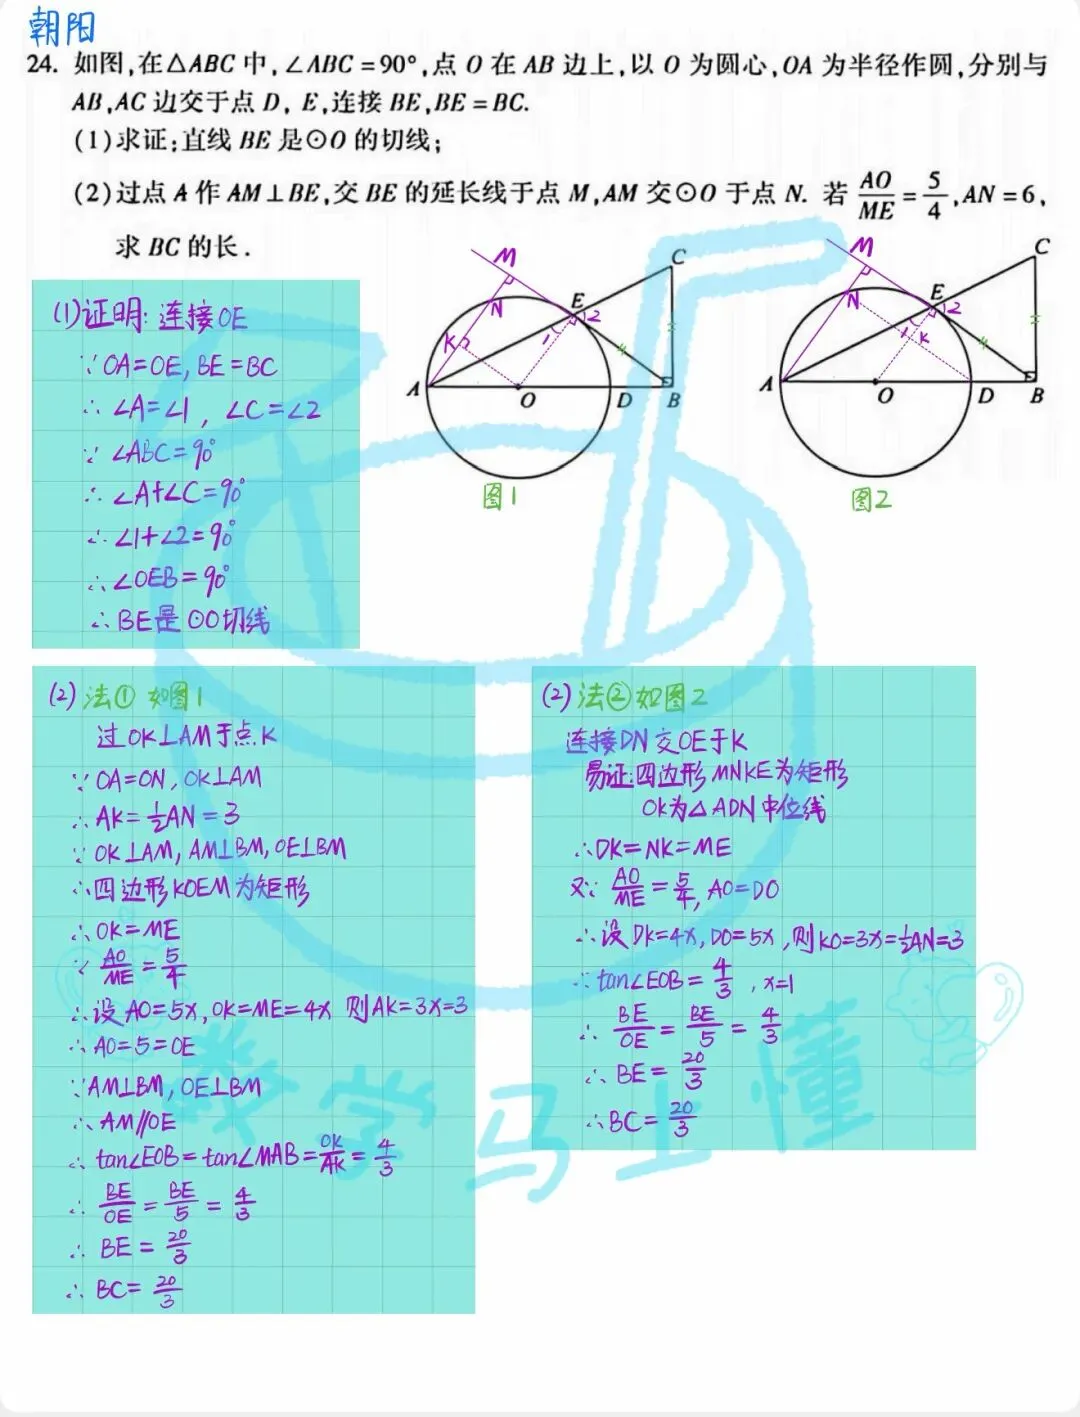 朝阳
24. 如图,在△ABC 中,∠ABC=90°,点 O 在 AB 边上,以 O 为圆心,OA 为半径作圆,分别与
AB,AC 边交于点 D, E,连接 BE,BE=BC.
(1)求证:直线 BE 是⊙O 的切线;
(2)过点 A 作 AM⊥BE,交 BE 的延长线于点 M,AM 交⊙O 于点 N. 若 AO/ME = 5/4, AN=6,
求 BC 的长.
M
C
N
E
2
K
1
A
O
D
B
图1
M
C
N
E
2
1
K
A
O
D
B
图2
(1)证明: 连接OE
∵ OA=OE, BE=BC
∴ ∠A=∠1, ∠C=∠2
∵ ∠ABC=90°
∴ ∠A+∠C=90°
∴ ∠1+∠2=90°
∴ ∠OEB=90°
∴ BE是⊙O切线
(2) 法① 如图1
过OK⊥AM于点K
∵ OA=ON, OK⊥AM
∴ AK=1/2AN=3
∵ OK⊥AM, AM⊥BM, OE⊥BM
∴ 四边形KOEM为矩形
∴ OK=ME
∵ AO/ME=5/4
∴ 设AO=5x, OK=ME=4x 则AK=3x=3
∴ AO=5=OE
∵ AM⊥BM, OE⊥BM
∴ AM∥OE
∴ tan∠EOB=tan∠MAB=OK/AK=4/3
∴ BE/OE=BE/5=4/3
∴ BE=20/3
∴ BC=20/3
(2) 法②如图2
连接DN交OE于K
易证:四边形MNKE为矩形
OK为△ADN中位线
∴ DK=NK=ME
又∵ AO/ME=5/4, AO=DO
∴ 设DK=4x, DO=5x, 则KO=3x=1/2AN=3
∴ tan∠EOB=4/3, x=1
∴ BE/OE=BE/5=4/3
∴ BE=20/3
∴ BC=20/3
数学马上懂